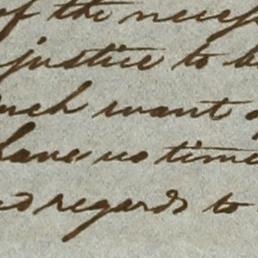 of the necess
justice to b
uch want o
have no time
ed regards to